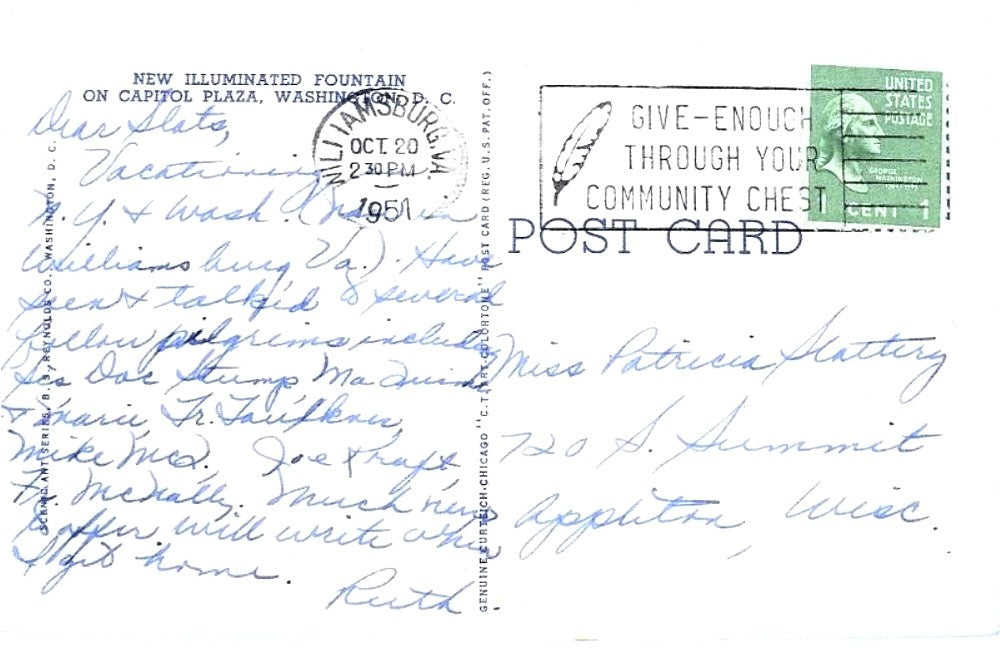 NEW ILLUMINATED FOUNTAIN
ON CAPITOL PLAZA, WASHINGTON, D. C.
Dear Slats,
Vacationing
N. Y. & Wash. (
Williamsburg Va.). Have
seen & talked to several
fellow pilgrims including
Doc Stump Ma
& Marie, Fr. Faulkner,
Mike McQ. Joe Kraft
Fr. McNally. Much
will write when
I get home.
Ruth
SCENIC ART SERIES, B. S. REYNOLDS CO., WASHINGTON, D. C.
GENUINE CURTEICH-CHICAGO "C. T. ART-COLORTONE" POST CARD (REG. U. S. PAT. OFF.)
WILLIAMSBURG, VA.
OCT 20
2 30 PM
1951
GIVE-ENOUGH
THROUGH YOUR
COMMUNITY CHEST
UNITED
STATES
POSTAGE
GEORGE
WASHINGTON
1 CENT 1
POST CARD
Miss Patricia Slattery
720 S. Summit
Appleton, Wisc.